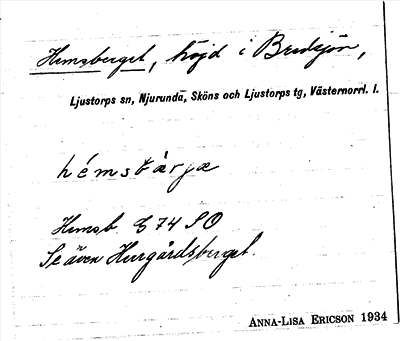 Hemsberget, höjd i Bredsjön,
Ljustorps sn, Njurunda, Sköns och Ljustorps tg, Västernorrl. l.
hémstbärjæ
Hemsb. G 74 SO
Se även Hurgårdsberget.
ANNA-LISA ERICSON 1934